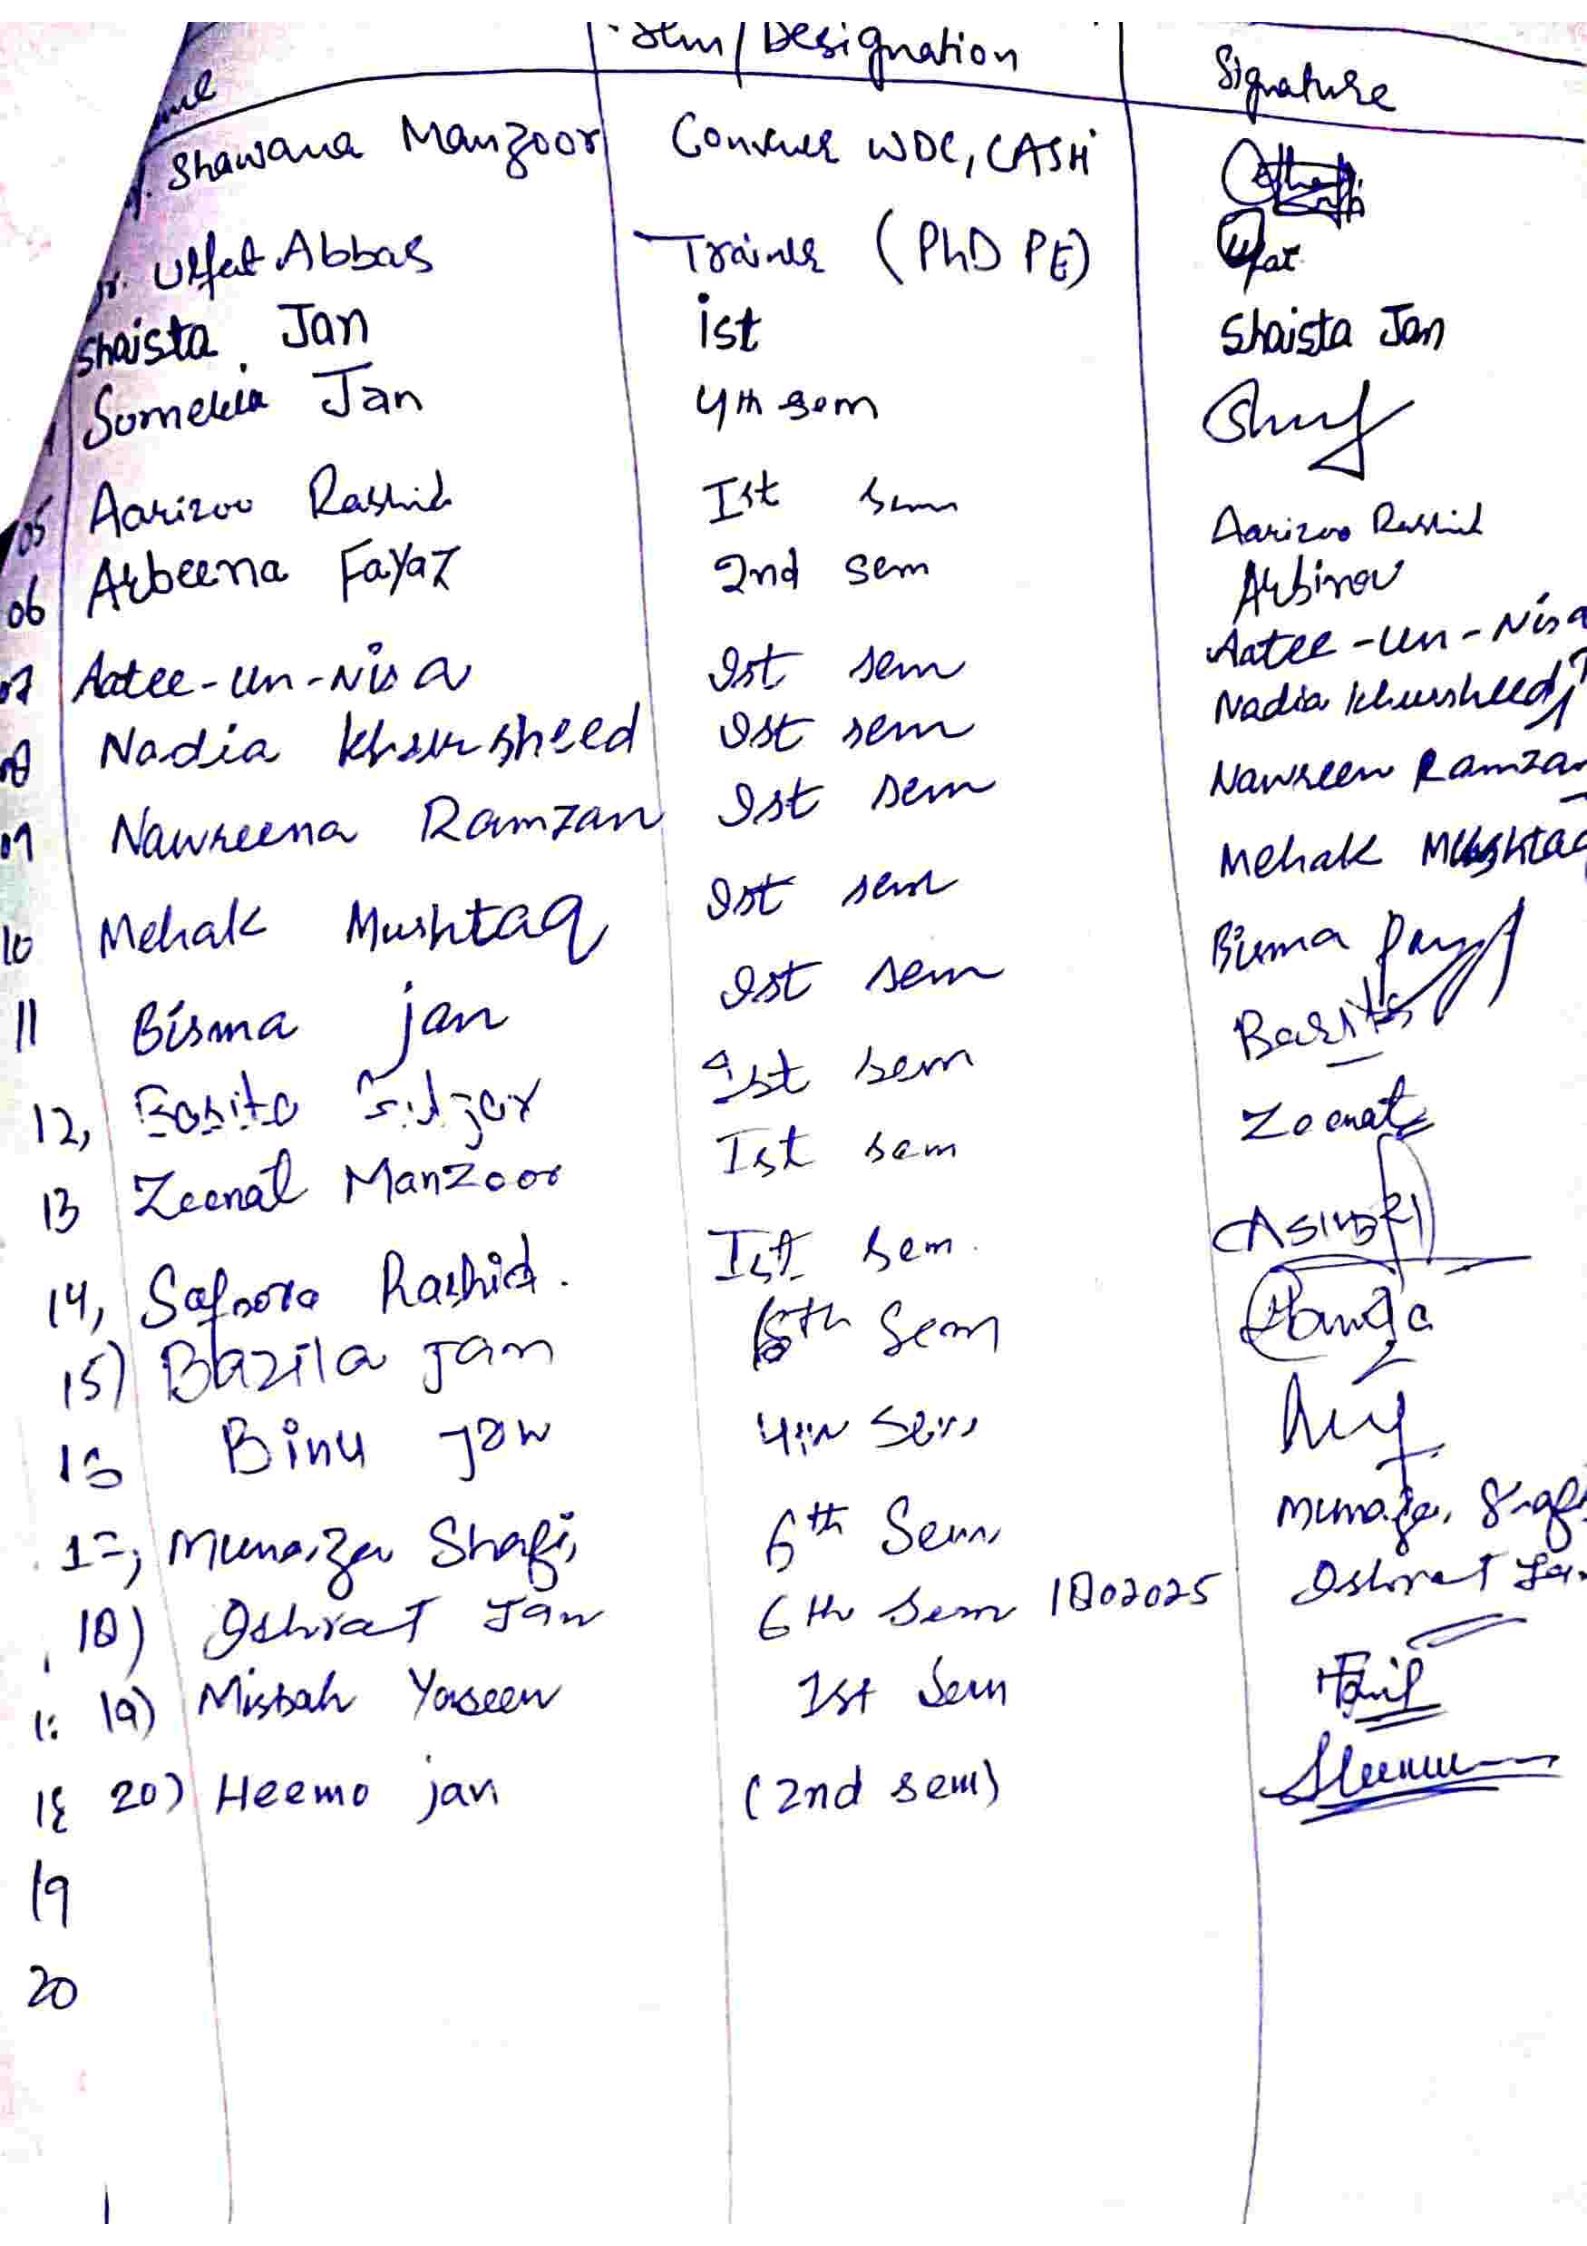 Sem/Designation Signature
Shawana Manzoor Convener WDC, CASH
Dr. Ulfat Abbas Trainer (PhD PE) Ulfat
Shaista Jan ist Shaista Jan
Jan 4th sem
05 Aarizoo Rashid Ist sem Aarizoo Rashid
06 Arbeena Fayaz 2nd sem
07 Aatee-un-Nisa Ist sem Aatee-un-Nisa
08 Nadia Khursheed Ist sem Nadia Khursheed
09 Nawreena Ramzan Ist sem Nawreen Ramzan
10 Mehak Mushtaq Ist sem Mehak Mushtaq
11 Bisma jan Ist sem Bisma
12, Ist sem
13 Zeenat Manzoor Ist sem Zeenat
14, Safoora Rashid. Ist Sem.
15) Bazila Jan 6th Sem
16 Binu Jan 4th Sem
17, Munaiza Shafi, 6th Sem
18) Ishrat Jan 6th Sem 1802025 Ishrat Jan
19) Misbah Yaseen 1st Sem
20) Heemo jan (2nd sem)
19
20